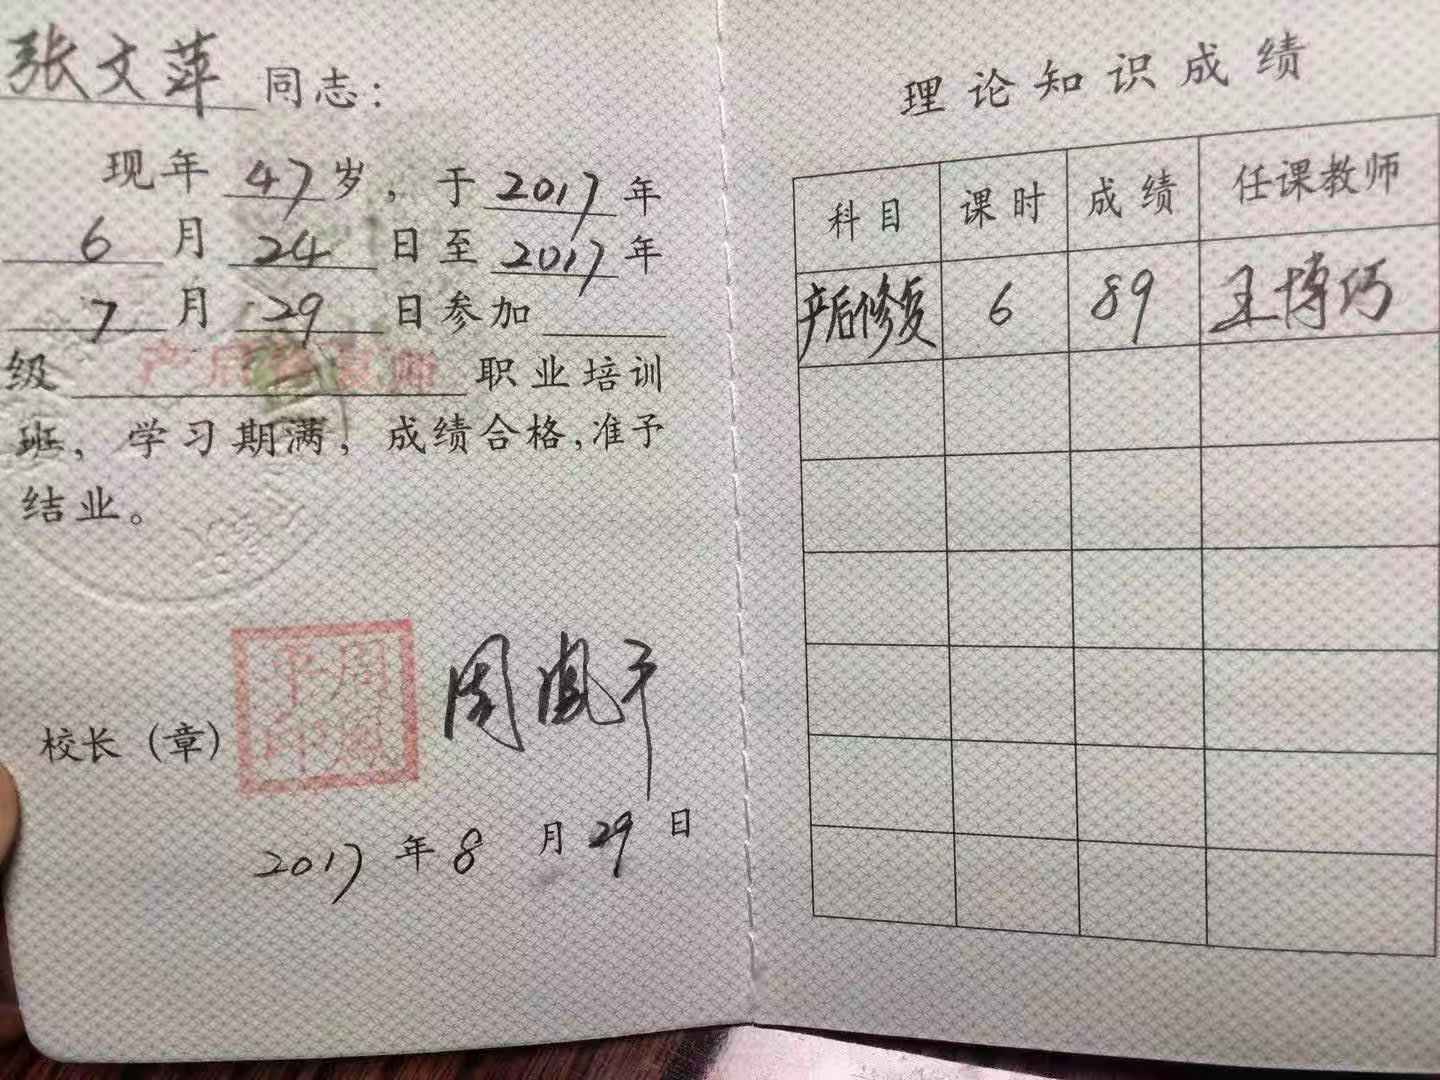 张文萍 同志：
现年 47 岁，于 2017 年
6 月 24 日至 2017 年
7 月 29 日参加
级 产后修复师 职业培训
班，学习期满，成绩合格，准予
结业。
校长（章）
周凤平印
周凤平
2017 年 8 月 29 日
理论知识成绩
科目 课时 成绩 任课教师
产后修复 6 89 王博巧